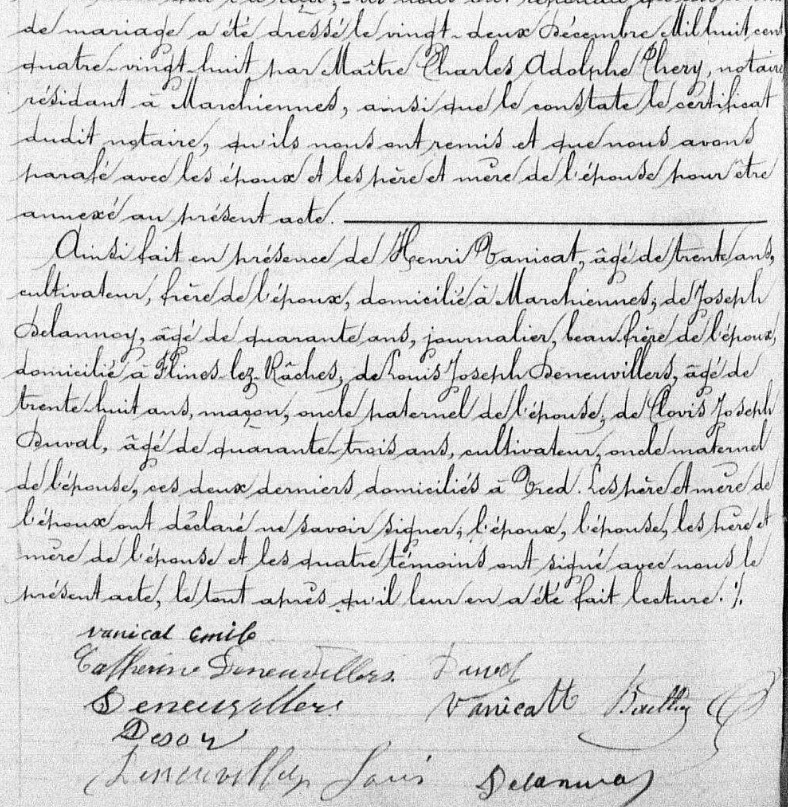 de mariage a été dressé le vingt-deux Décembre Mil huit cent
quatre-vingt-huit par Maître Charles Adolphe Chery, notaire
résidant à Marchiennes, ainsi que le constate le certificat
dudit notaire, qu'ils nous ont remis et que nous avons
parafé avec les époux et les père et mère de l'épouse pour être
annexé au présent acte.
Ainsi fait en présence de Henri Vanicat, âgé de trente ans,
cultivateur, frère de l'époux, domicilié à Marchiennes; de Joseph
Delannoy, âgé de quarante ans, journalier, beau frère de l'époux,
domicilié à Flines-lez-Râches, de Louis Joseph Deneuvillers, âgé de
trente-huit ans, maçon, oncle paternel de l'épouse; de Clovis Joseph
Duval, âgé de quarante-trois ans, cultivateur, oncle maternel
de l'épouse, ces deux derniers domiciliés à Vred. Les père et mère de
l'époux ont déclaré ne savoir signer; l'époux, l'épouse, les père et
mère de l'épouse et les quatre témoins ont signé avec nous le
présent acte, le tout après qu'il leur en a été fait lecture. ./.
vanicat Emile
Catherine Deneuvillers Duval
Deneuvillers Vanicatt
Deneuvillers Louis Delannoy